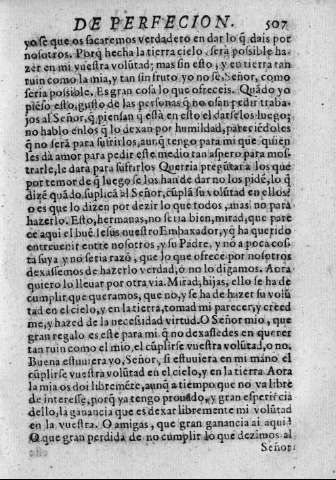 DE PERFECION. 507
yo se que os sacaremos verdadero en dar lo q̃ dais por
nosotros. Porq̃ hecha la tierra cielo, será possible ha-
zer en mi vuestra volũtad; mas sin esto, y en tierra tan
ruin como la mia, y tan sin fruto, yo no se, Señor, como
seria possible. Es gran cosa lo que ofreceis. Quãdo yo
piẽso esto, gusto de las personas q̃ no osan pedir traba-
jos al Señor, q̃ piensan q̃ está en esto el darselos luego:
no hablo enlos q̃ lo dexan por humildad, pareciẽdoles
q̃ no serà para sufrirlos, aunq̃ tengo para mi que quien
les dà amor para pedir este medio tan aspero para mos-
trarle, le dara para sufrirlos Querria pregũtar a los que
por temor de q̃ luego se los han de dar no los pidẽ, lo q̃
dizẽ quãdo suplicã al Señor, cũpla su volũtad en ellos?
o es que lo dizen por dezir lo que todos, mas no para
hazerlo. Esto, hermanas, no seria bien, mirad, que pare
ce aqui el bue. Iesus nuestro Embaxador, y q̃ ha querido
entreuenir entre nosotros, y su Padre, y no a poca cos-
ta suya y no seria razõ, que lo que ofrece por nosotros
dexassemos de hazerlo verdad, o no lo digamos. Aora
quiero lo lleuar por otra via. Mirad, hijas, ello se ha de
cumplir que queramos, que no, y se ha de hazer su volũ
tad en el cielo, y en la tierra, tomad mi parecer, y creed
me, y hazed de la necessidad virtud. O Señor mio, que
gran regalo es este para mi, q̃ no dexassedes en querer
tan ruin como el mio, el cũplirse vuestra volũtad, o no.
Buena estuuiera yo, Señor, si estuuiera en mi mano el
cũplirse vuestra volũtad en el cielo, y en la tierra. Aora
la mia os doi libremẽte, aunq̃ a tiempo que no va libre
de interesse, porq̃ ya tengo prouado, y gran esperiẽcia
dello, la ganancia que es dexar libremente mi volũtad
en la vuestra. O amigas, que gran ganancia ai aqui!
O que gran perdida de no cumplir lo que dezimos al
Señor